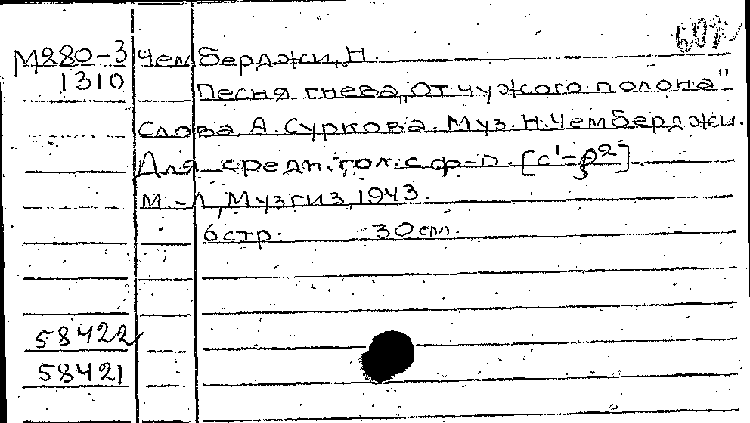 М880-3 Чемберджи, Н.
1310
Песня гнева „От чужого полона"
Слова А. Суркова. Муз. Н. Чемберджи.
Для средн. гол. с ф-п.
М.-Л., Музгиз, 1943.
6 стр. 30 см.
58422
58421